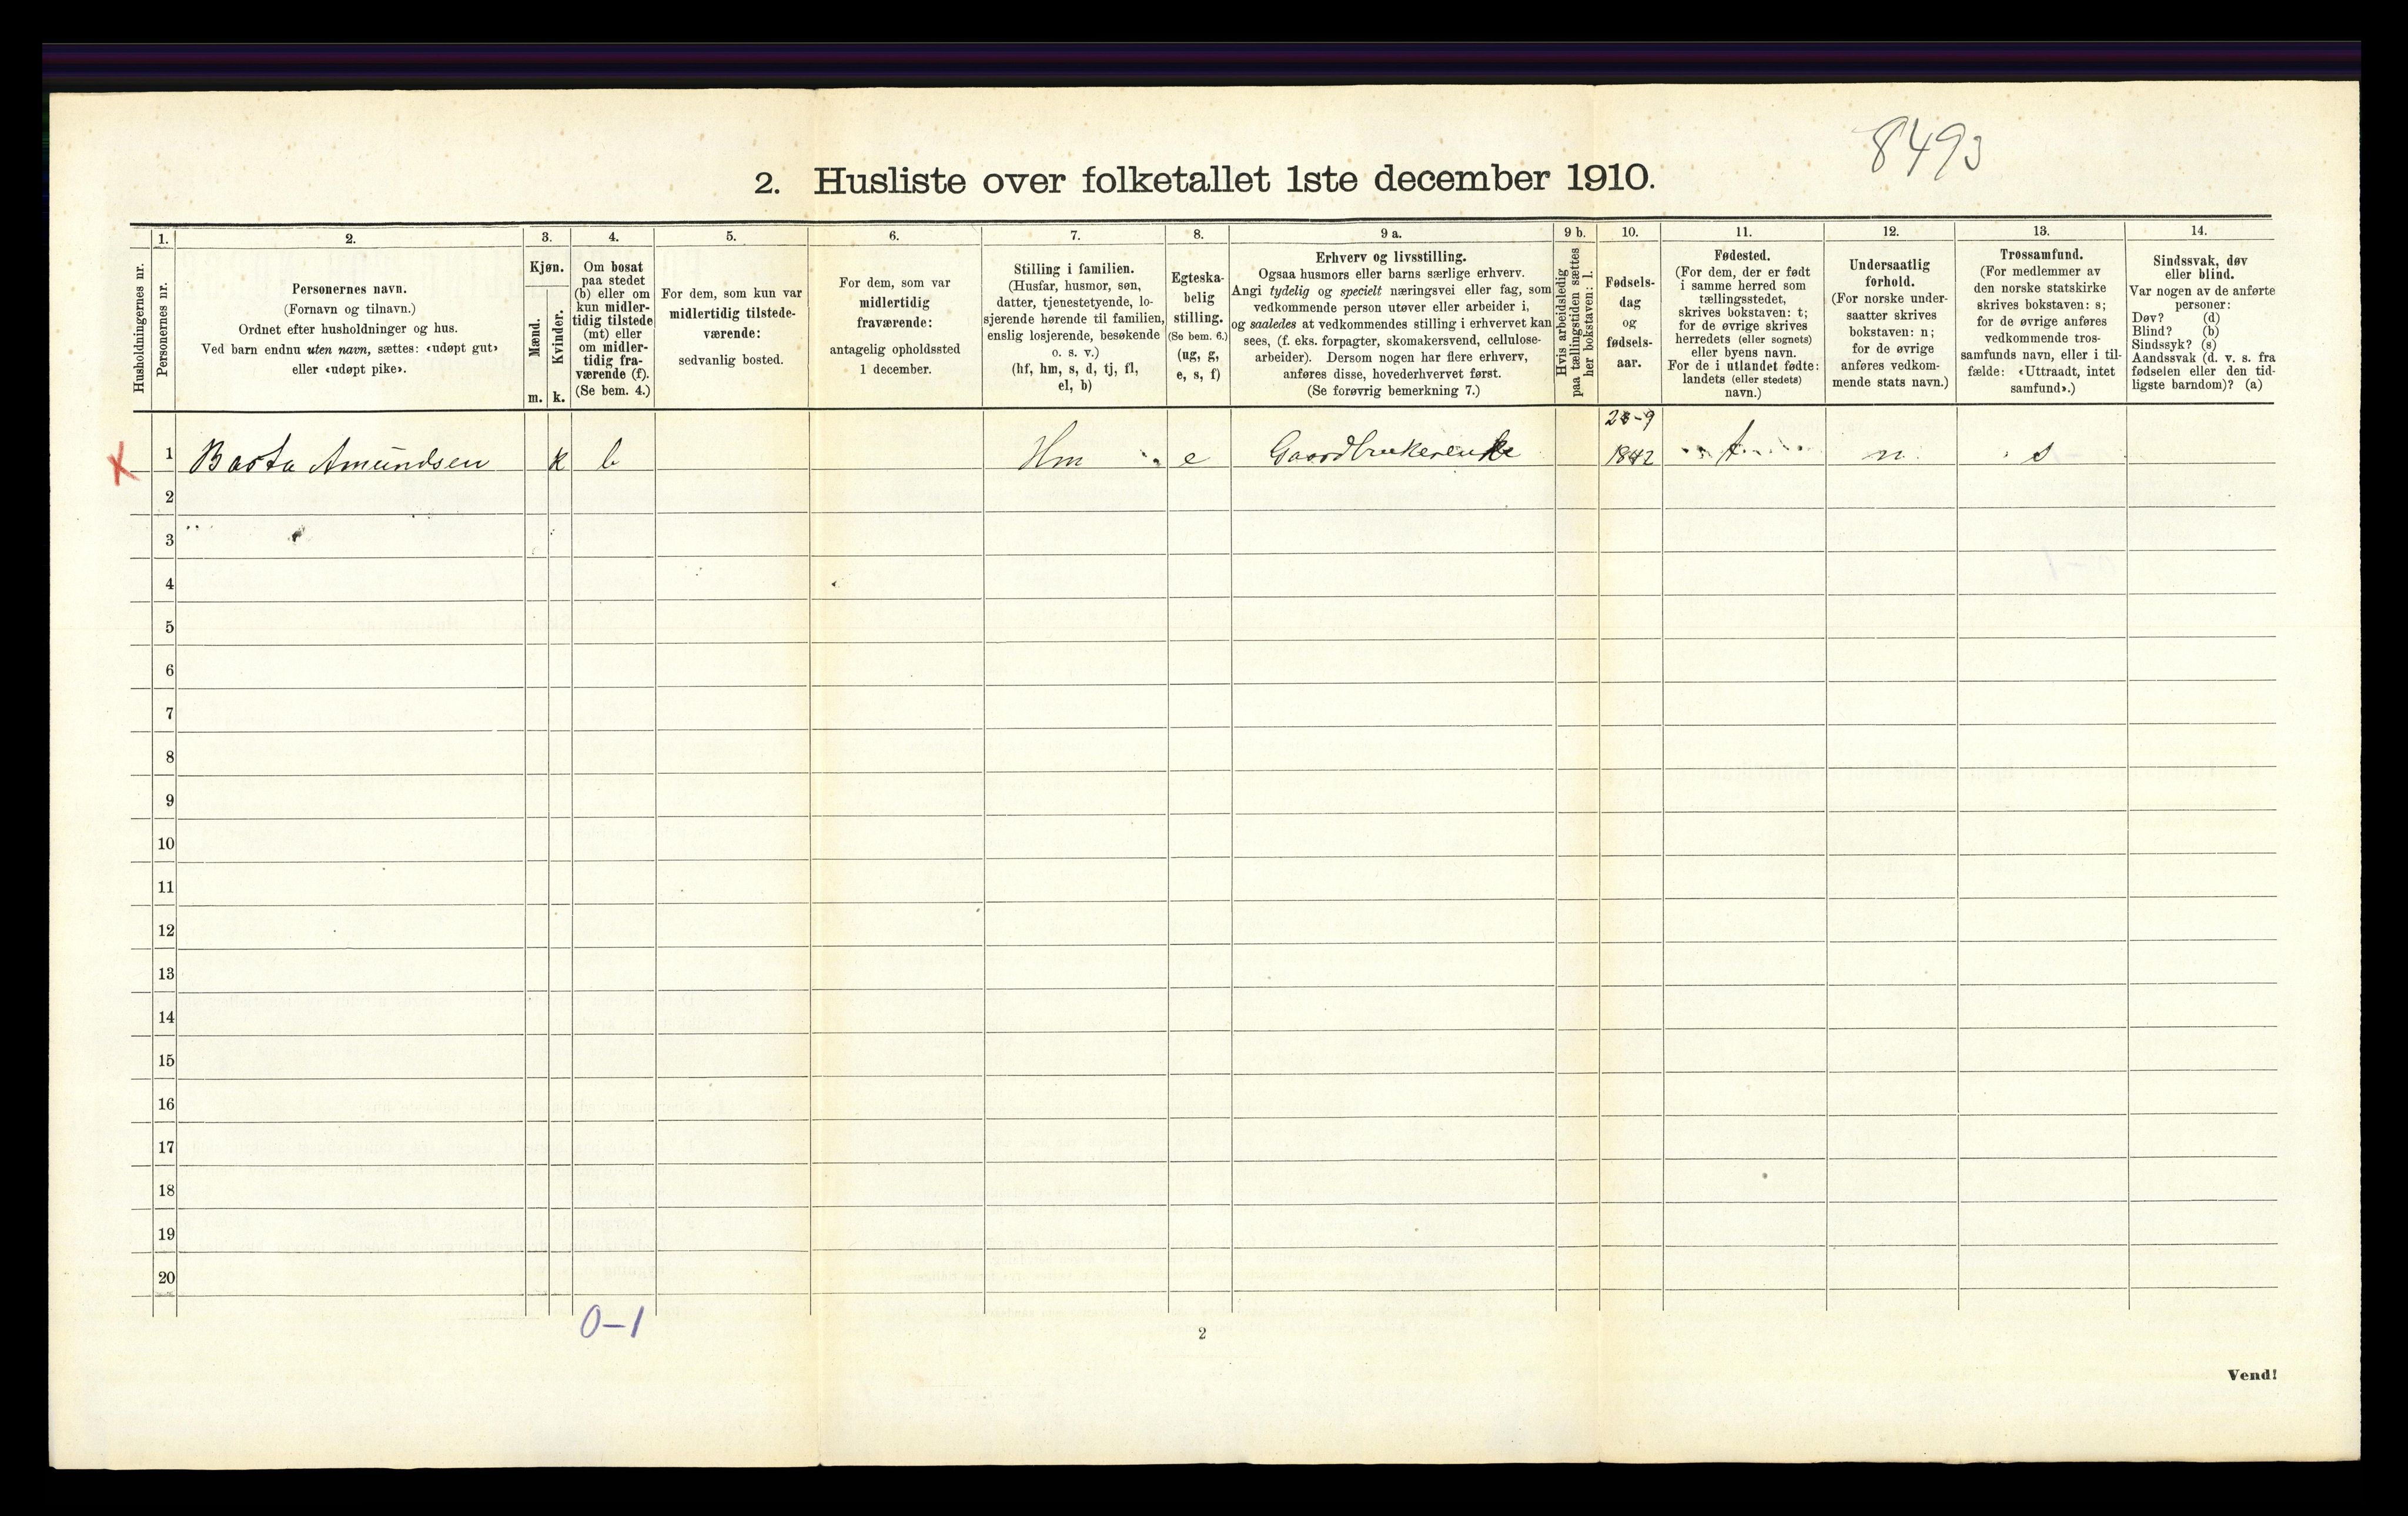 8493
2. Husliste over folketallet 1ste december 1910.
Husholdningernes nr.
1.
Personernes nr.
2.
Personernes navn.
(Fornavn og tilnavn.)
Ordnet efter husholdninger og hus.
Ved barn endnu uten navn, sættes: «udøpt gut»
eller «udøpt pike».
3.
Kjøn.
Mænd.
Kvinder.
m. k.
4.
Om bosat
paa stedet
(b) eller om
kun midler-
tidig tilstede
(mt) eller
om midler-
tidig fra-
værende (f).
(Se bem. 4.)
5.
For dem, som kun var
midlertidig tilstede-
værende:
sedvanlig bosted.
6.
For dem, som var
midlertidig
fraværende:
antagelig opholdssted
1 december.
7.
Stilling i familien.
(Husfar, husmor, søn,
datter, tjenestetyende, lo-
sjerende hørende til familien,
enslig losjerende, besøkende
o. s. v.)
(hf, hm, s, d, tj, fl,
el, b)
8.
Egteska-
belig
stilling.
(Se bem. 6.)
(ug, g,
e, s, f)
9 a.
Erhverv og livsstilling.
Ogsaa husmors eller barns særlige erhverv.
Angi tydelig og specielt næringsvei eller fag, som
vedkommende person utøver eller arbeider i,
og saaledes at vedkommendes stilling i erhvervet kan
sees, (f. eks. forpagter, skomakersvend, cellulose-
arbeider). Dersom nogen har flere erhverv,
anføres disse, hovederhvervet først.
(Se forøvrig bemerkning 7.)
9 b.
Hvis arbeidsledig
paa tællingstiden sættes
her bokstaven: l.
10.
Fødsels-
dag
og
fødsels-
aar.
11.
Fødested.
(For dem, der er født
i samme herred som
tællingsstedet,
skrives bokstaven: t;
for de øvrige skrives
herredets (eller sognets)
eller byens navn.
For de i utlandet fødte:
landets (eller stedets)
navn.)
12.
Undersaatlig
forhold.
(For norske under-
saatter skrives
bokstaven: n;
for de øvrige
anføres vedkom-
mende stats navn.)
13.
Trossamfund.
(For medlemmer av
den norske statskirke
skrives bokstaven: s;
for de øvrige anføres
vedkommende tros-
samfunds navn, eller i til-
fælde: «Uttraadt, intet
samfund».)
14.
Sindssvak, døv
eller blind.
Var nogen av de anførte
personer:
Døv? (d)
Blind? (b)
Sindssyk? (s)
Aandssvak (d. v. s. fra
fødselen eller den tid-
ligste barndom)? (a)
X 1 Amundsen k b Hm e -9 1842 t n s
2
3
4
5
6
7
8
9
10
11
12
13
14
15
16
17
18
19
20
0-1
2
Vend!